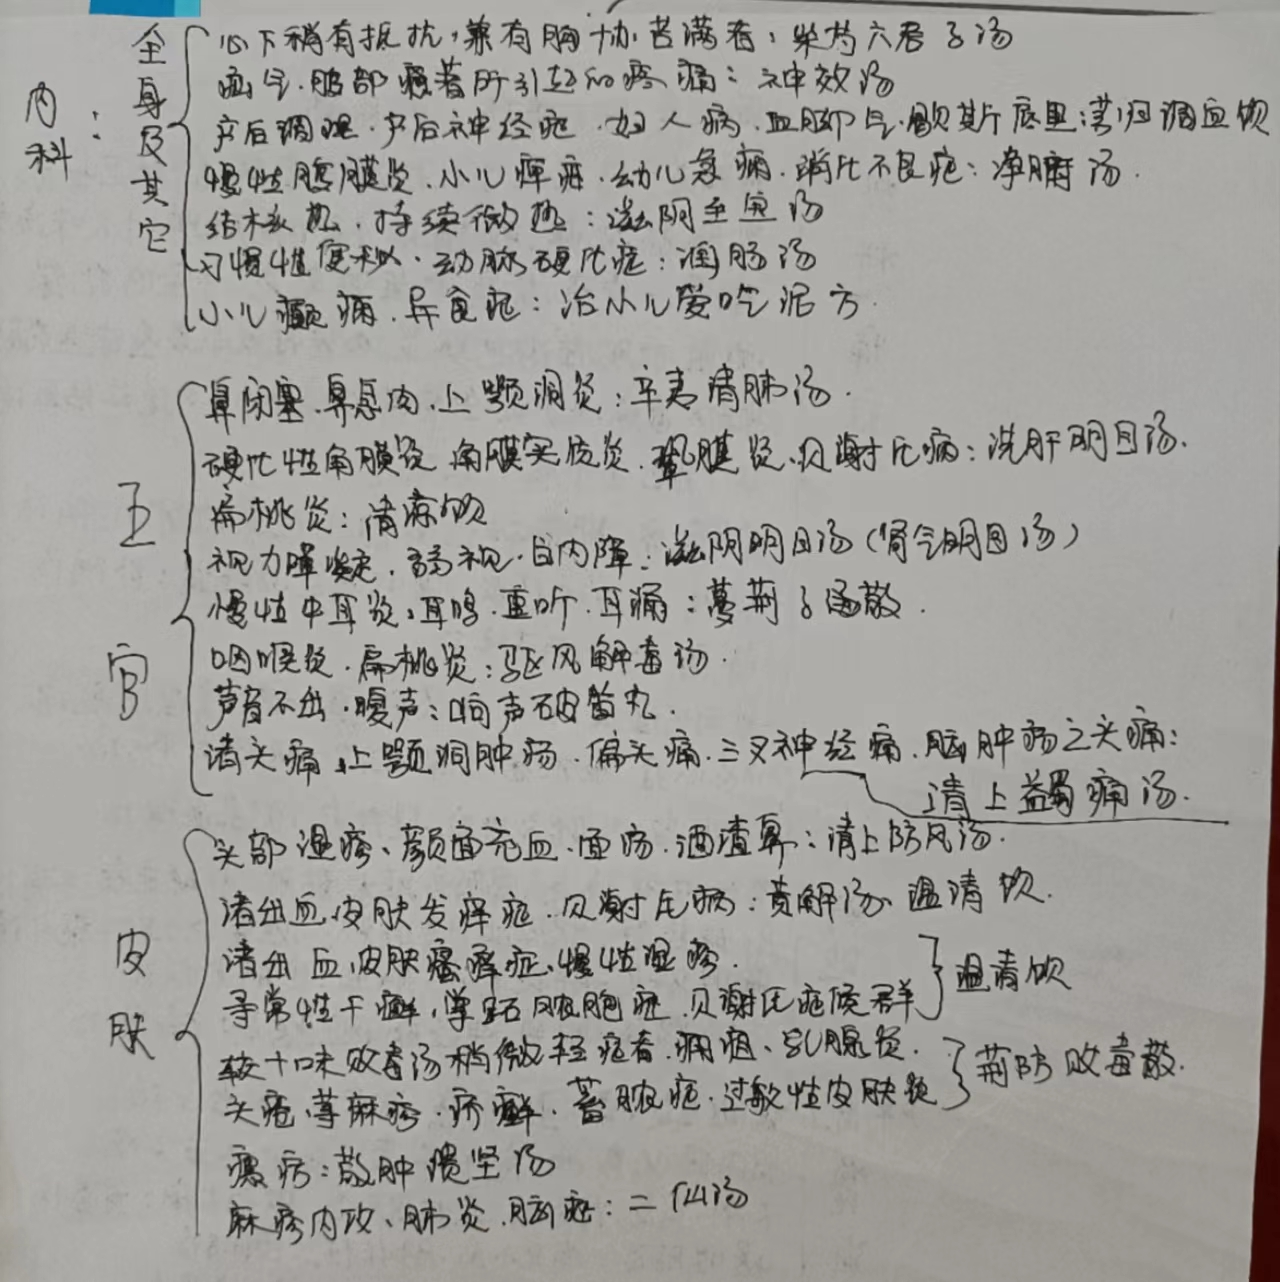 内科：
全身及其它
心下稍有抵抗，兼有胸协苦满者：柴芍六君子汤
疝气．腹部瘾著所引起的疼痛：神效汤
产后调理．产后神经症．妇人病．血脚气．歇斯底里：芎归调血饮
慢性腹膜炎．小儿．幼儿急痛．消化不良症：净腑汤．
结核热．持续微热：滋阴至宝汤
习惯性便秘．动脉硬化症：润肠汤
小儿癫痫．异食症：治小儿爱吃泥方．
五官
鼻闭塞．鼻息肉．上颚洞炎：辛夷清肺汤．
硬化性角膜炎．角膜实质炎．巩膜炎．贝谢氏病：洗肝明目汤．
扁桃炎：清凉饮
视力障碍．弱视．白内障：滋阴明目汤（肾气明目汤）
慢性中耳炎，耳鸣．重听．耳痛：蔓荆子散．
咽喉炎．扁桃炎：驱风解毒汤．
声音不出．嗄声：响声破笛丸．
诸头痛，上颚洞肿疡．偏头痛．三叉神经痛．脑肿疡之头痛：
清上蠲痛汤．
皮肤
头部湿疹、颜面充血．面疡．酒渣鼻：清上防风汤．
诸出血，皮肤发痒症．贝谢氏病：黄解汤、温清饮．
诸出血，皮肤瘙痒症、慢性湿疹．
寻常性干癣，掌跖脓疱症．贝谢氏症候群 温清饮
较十味败毒汤稍微轻症者．痈疽、乳腺炎．
头疮，荨麻疹．疥癣．蓄脓症．过敏性皮肤炎 荆防败毒散．
瘰疬：散肿溃坚汤
麻疹内攻、肺炎．脑症：二仙汤